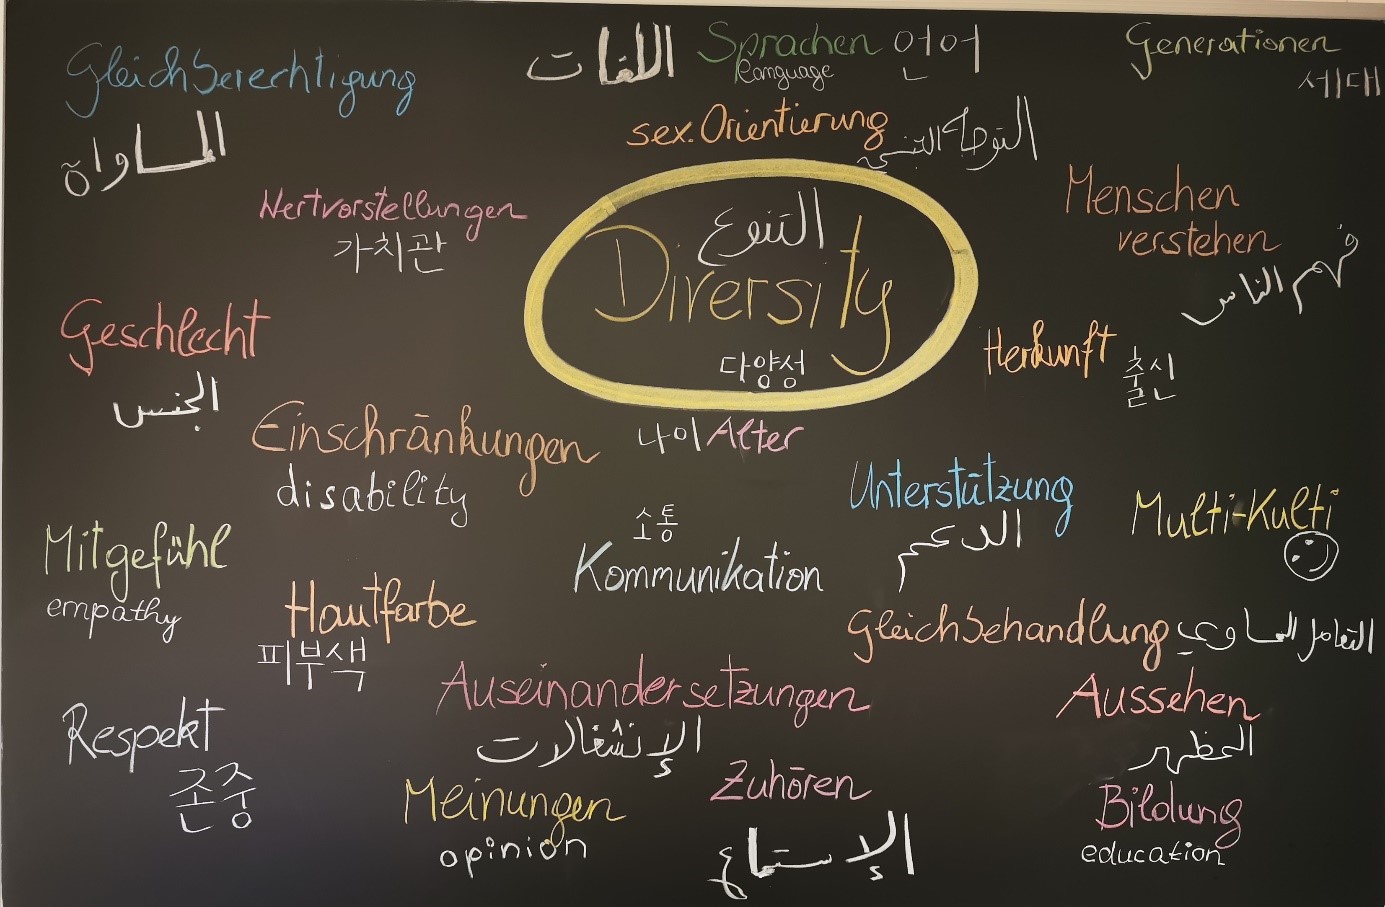 Gleichberechtigung
المساواة
اللغات Sprachen 언어
language
Generationen
세대
sex. Orientierung
التوجه الجنسي
Wertvorstellungen
가치관
التنوع
Diversity
다양성
Menschen
verstehen
فهم الناس
Geschlecht
الجنس
Herkunft 출신
Einschränkungen
disability
나이 Alter
Unterstützung
الدعم
Multi-Kulti
Mitgefühl
empathy
소통
Kommunikation
Hautfarbe
피부색
Gleichbehandlung التعامل المساوي
Auseinandersetzungen
الإنشغالات
Aussehen
المظهر
Respekt
존중
Meinungen
opinion
Zuhören
الإستماع
Bildung
education